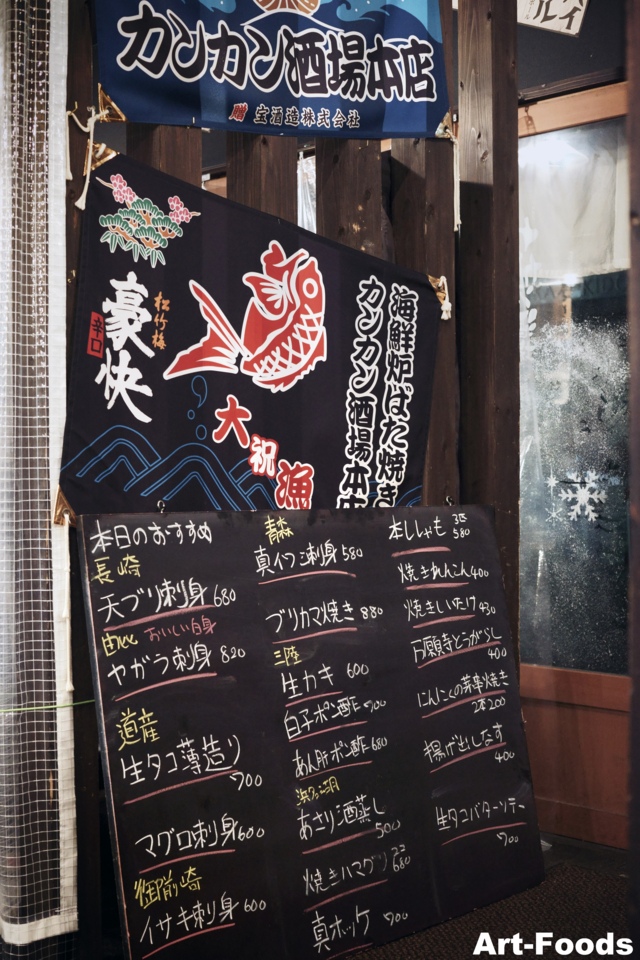 カンカン酒場本店
贈 宝酒造株式会社
松竹梅
豪快
辛口
海鮮炉ばた焼き
カンカン酒場本店
大祝漁
本日のおすすめ
長崎
天ブリ刺身 680
おいしい白身
ヤガラ刺身 820
道産
生タコ薄造り
700
マグロ刺身 600
御前崎
イサキ刺身 600
青森
真イワシ刺身 580
ブリカマ焼き 880
三陸
生カキ 600
白子ポン酢 700
あん肝ポン酢 680
浜名湖
あさり酒蒸し
500
焼きハマグリ 2コ
680
真ホッケ 700
本ししゃも 3匹
580
焼きれんこん 400
焼きしいたけ 430
万願寺とうがらし
400
にんにくの芽串焼き
2本200
揚げ出しなす
400
生タコバターソテー
700
Art-Foods